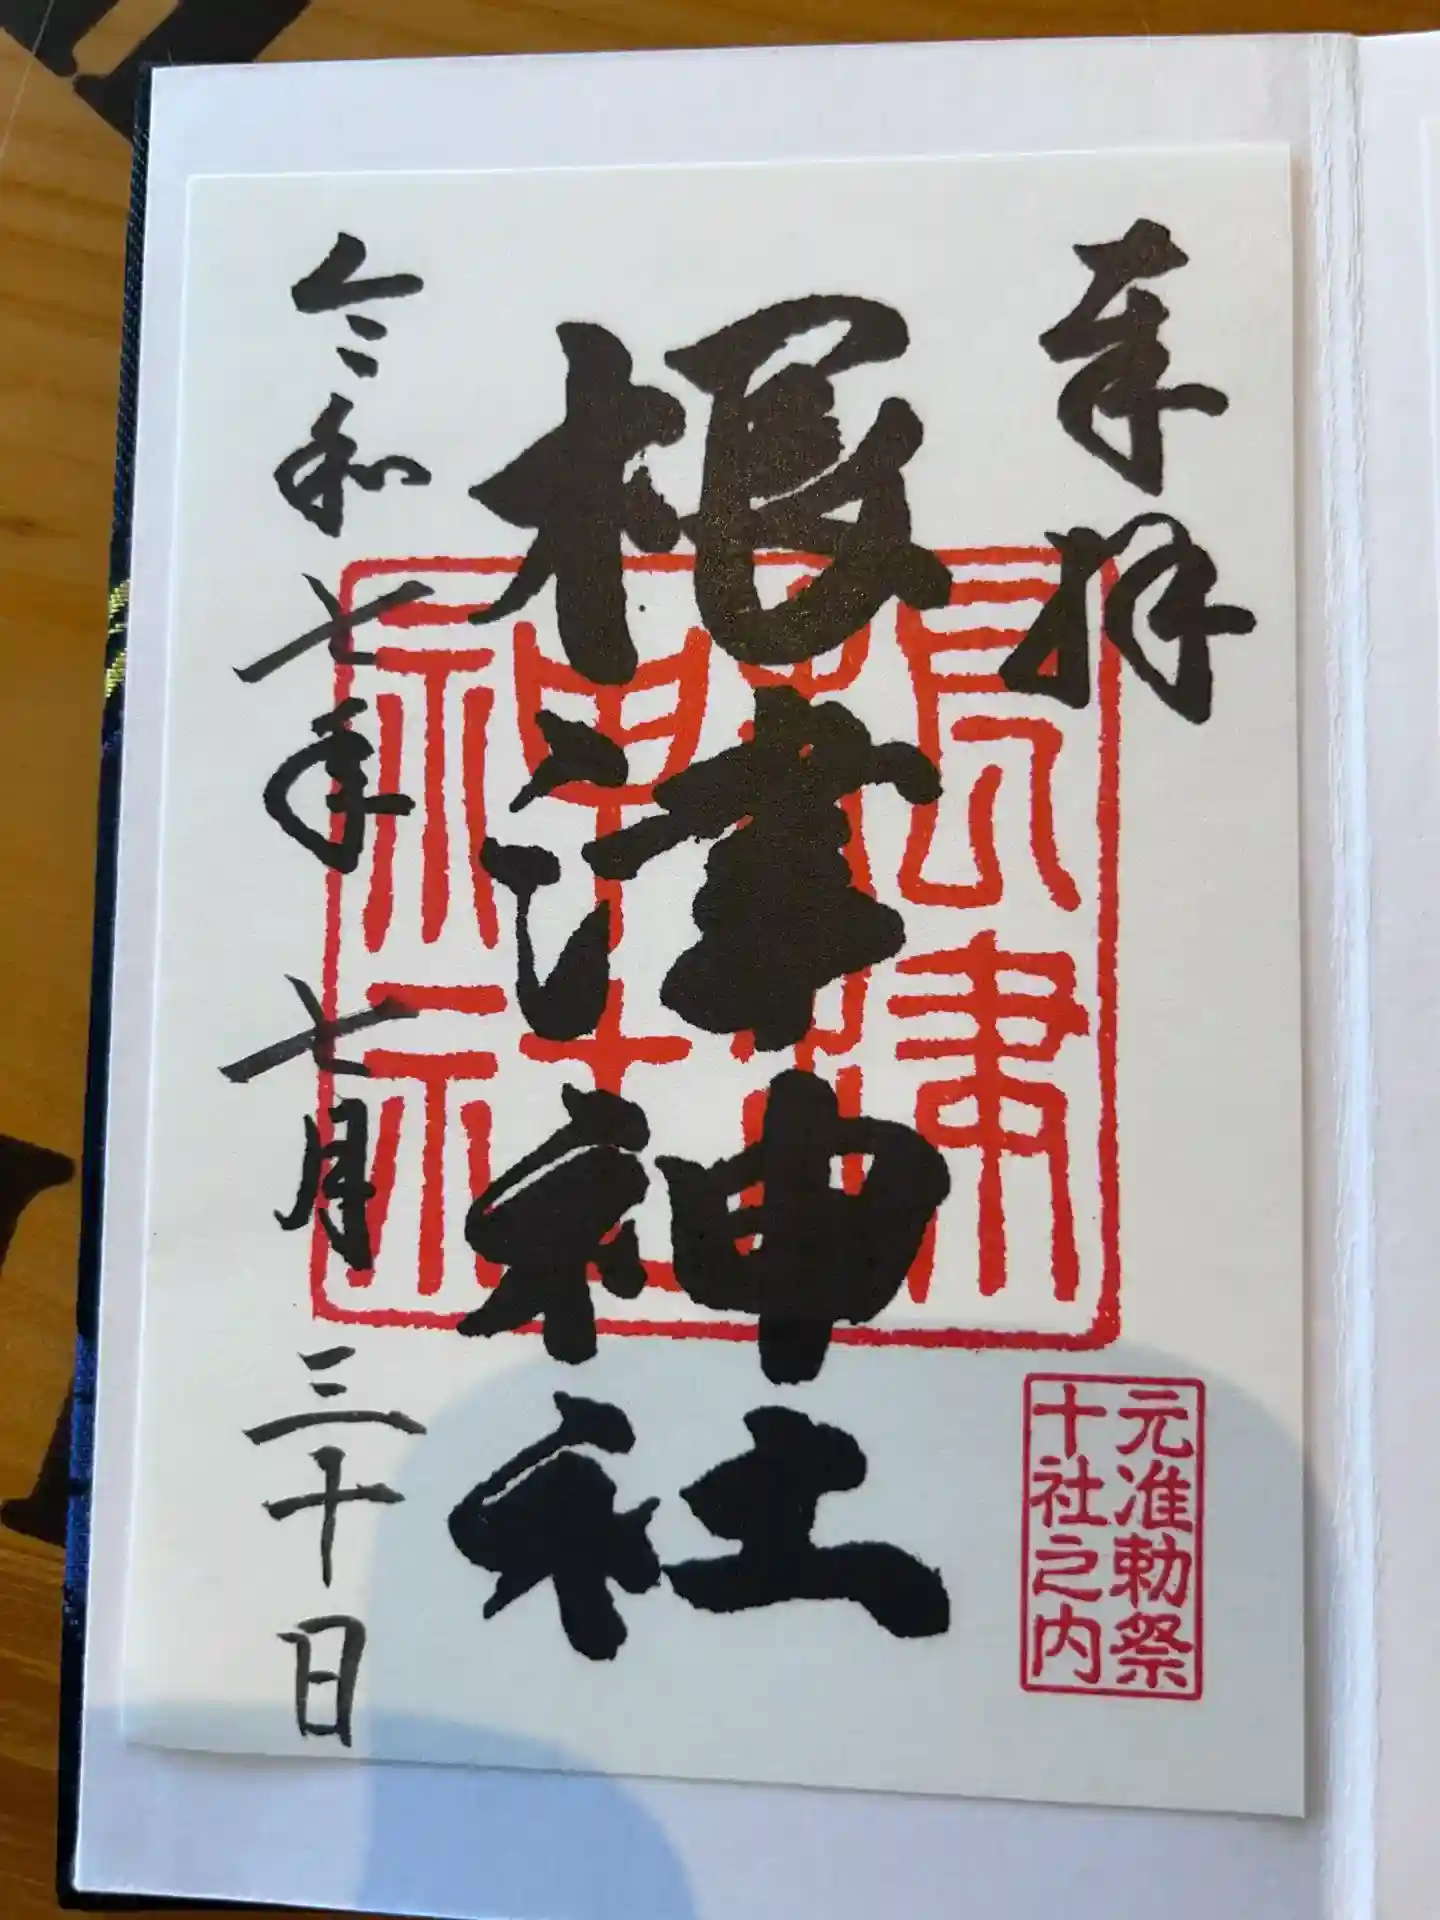 奉拝
元准勅祭
十社之内
根津神社
根津神社
令和七年七月三十日